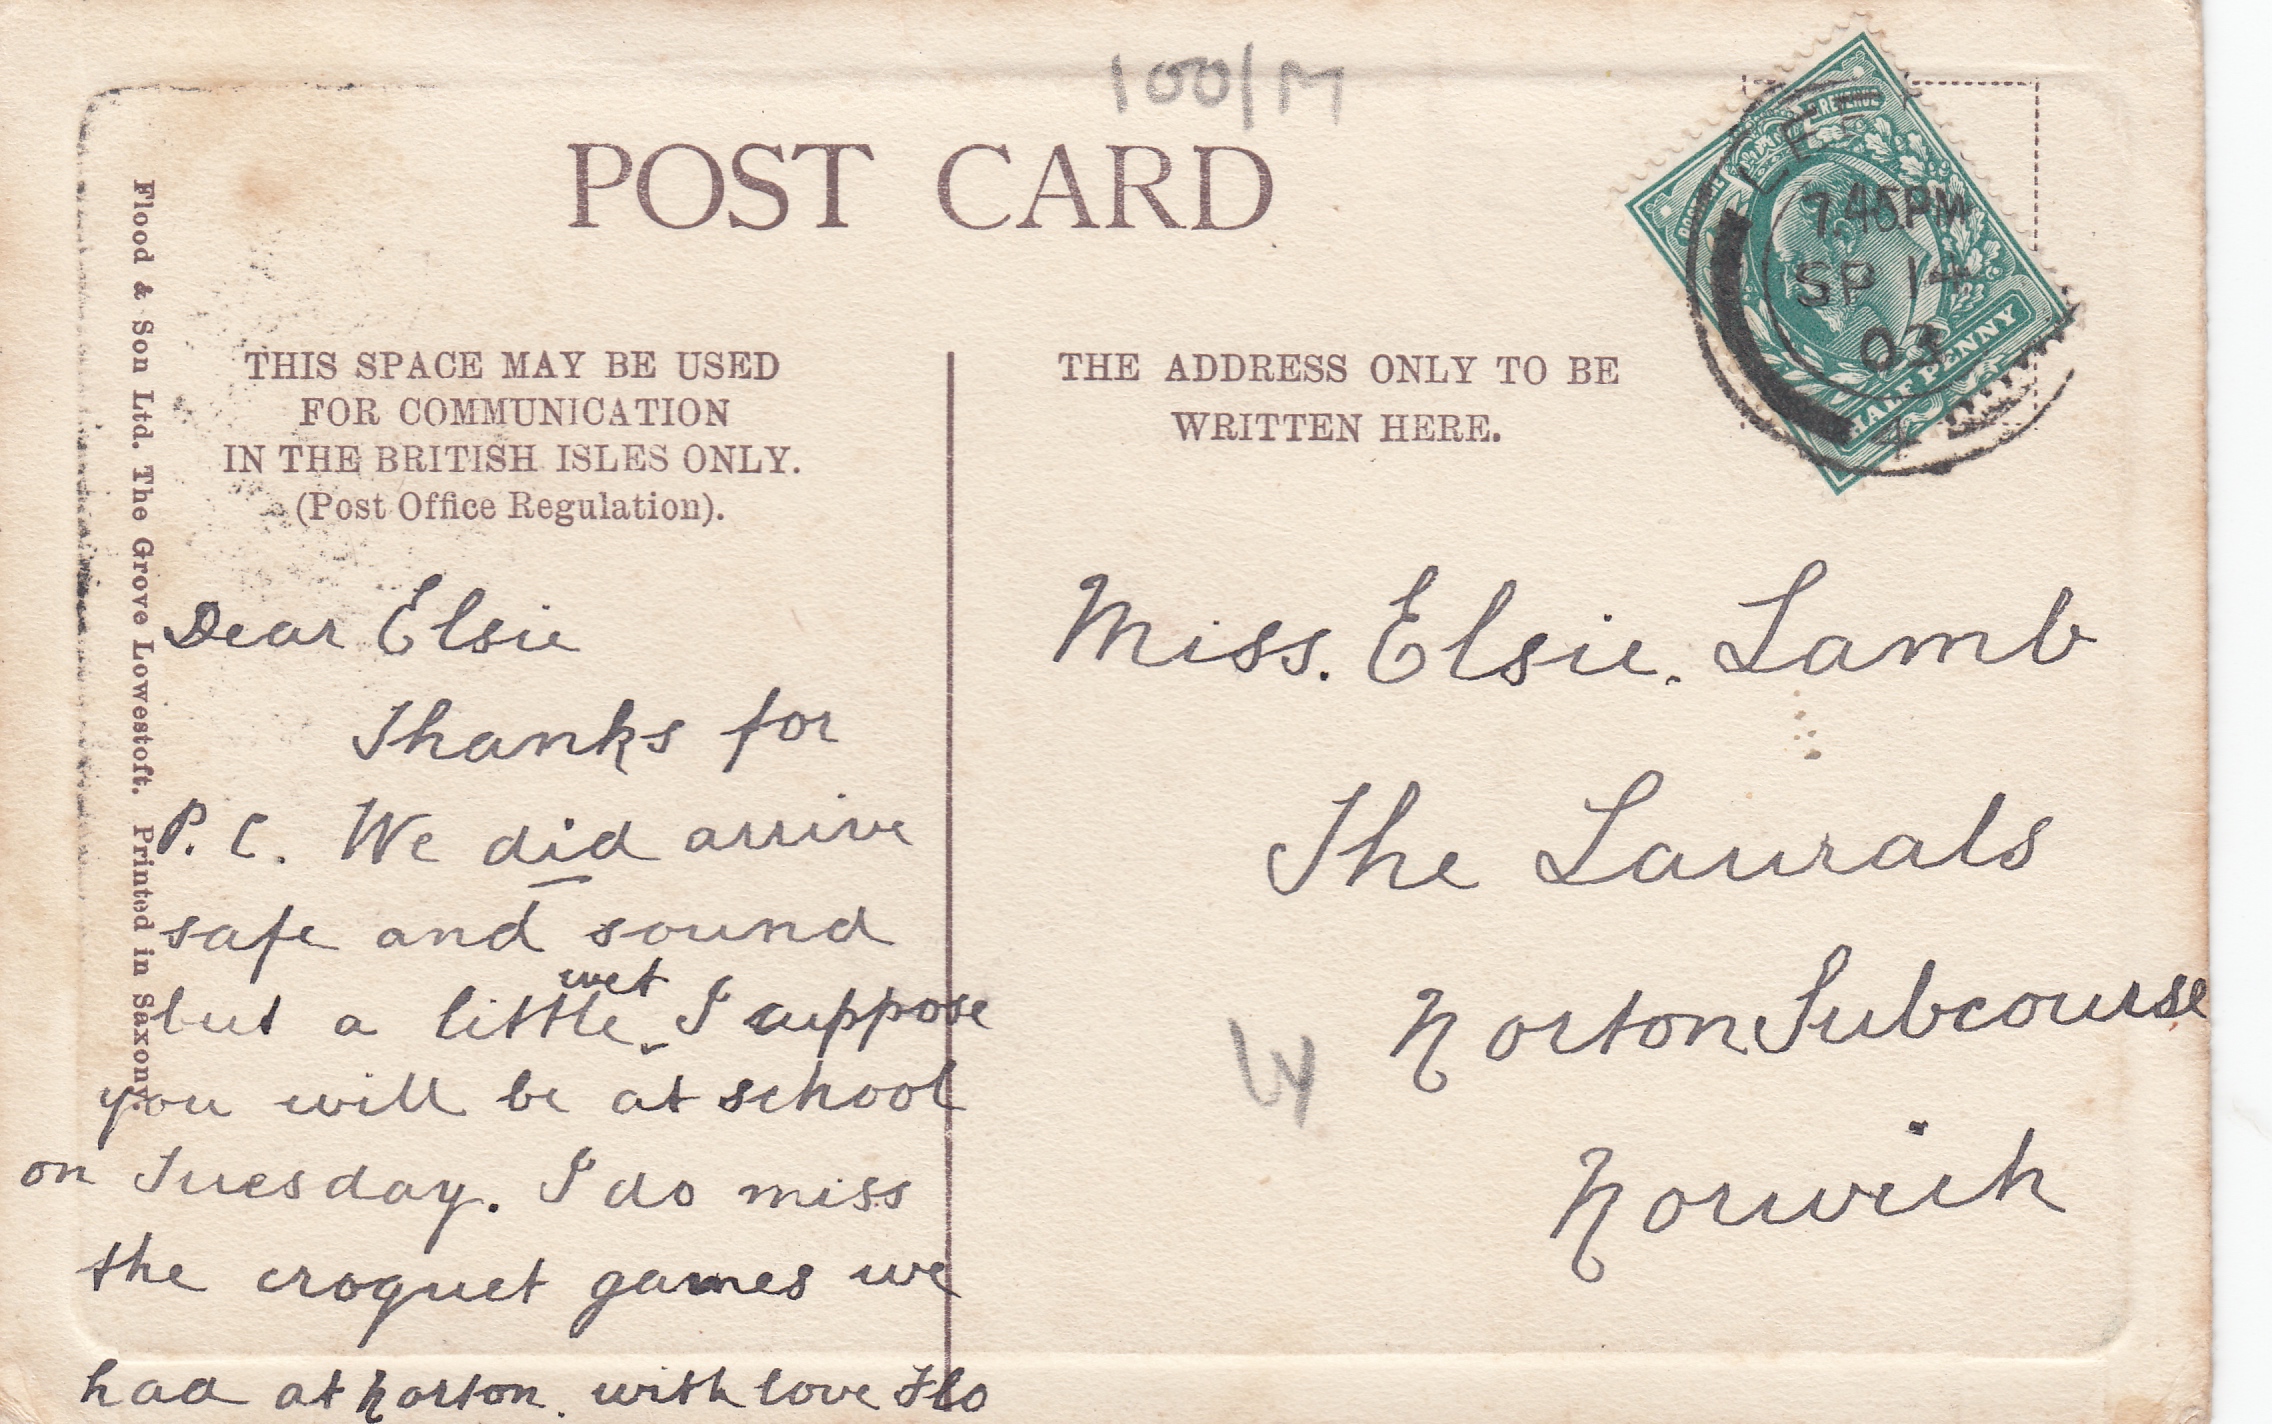 100/M
POST CARD
Flood & Son Ltd. The Grove Lowestoft. Printed in Saxony.
THIS SPACE MAY BE USED
FOR COMMUNICATION
IN THE BRITISH ISLES ONLY.
(Post Office Regulation).
THE ADDRESS ONLY TO BE
WRITTEN HERE.
POSTAGE REVENUE
HALFPENNY
7.45PM
SP 14
03
Dear Elsie
Thanks for
P. C. We did arrive
safe and sound
but a little wet I suppose
you will be at school
on Tuesday. I do miss
the croquet games we
had at Norton. with love Flo
Miss. Elsie. Lamb
The Laurals
Norton Subcourse
Norwich